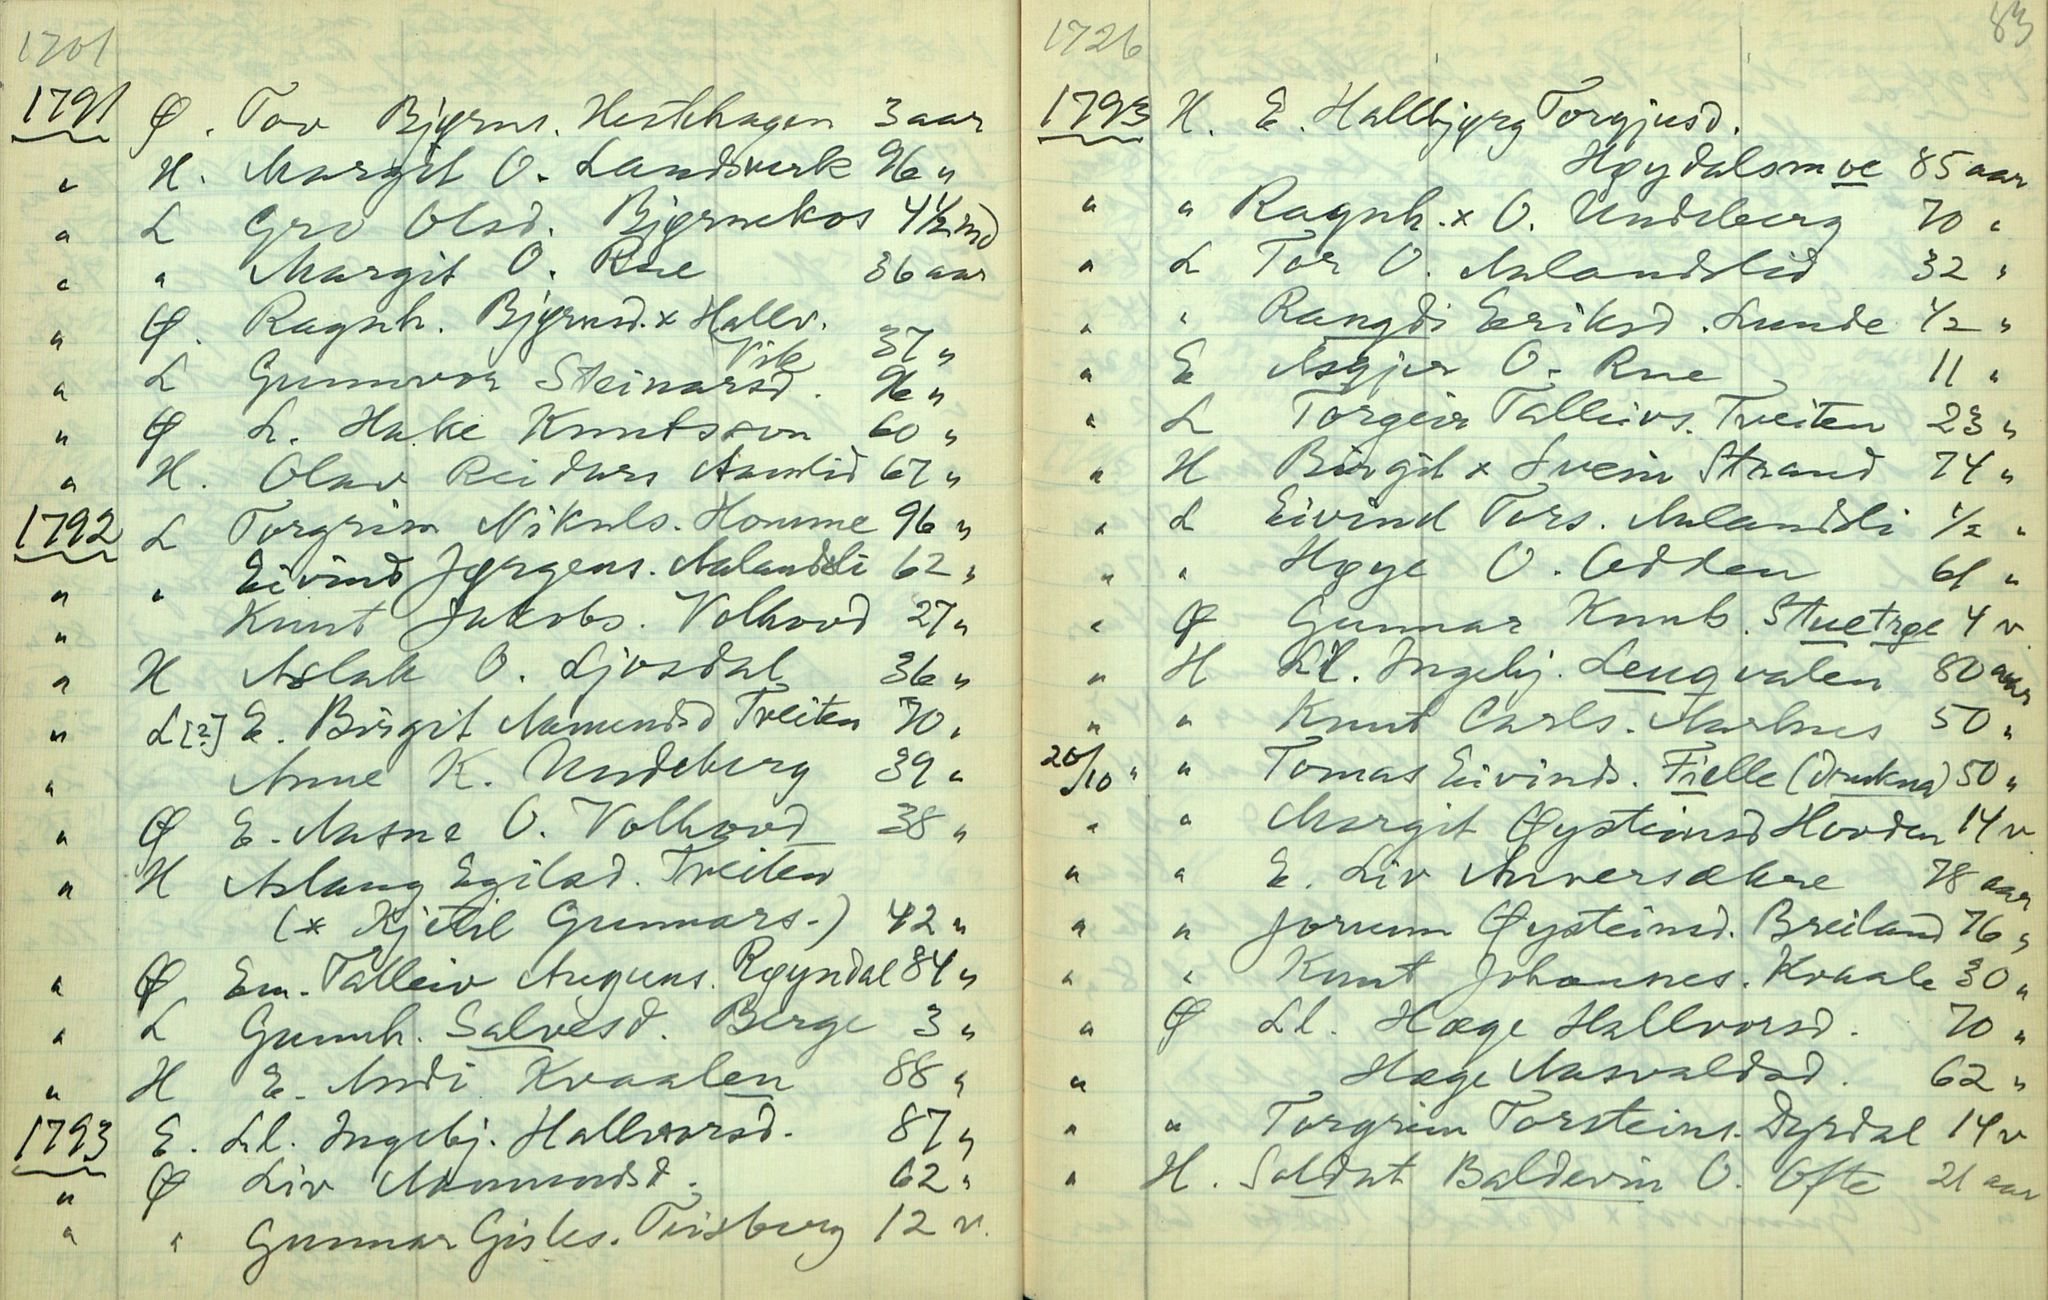 1701
1791 Ø. Tov Bjørns. Hestehagen 3 aar
" H. Margit O. Landsverk 96 "
" L Gro Olsd. Bjørnekos 4½ md
" " Margit O. Rue 36 aar
" Ø. Ragnh. Bjørnsd. x Hallv.
Vik 37 "
" L Gunnvor Steinarsd. 96 "
" Ø L. Hake Knutsson 60 "
" H. Olav Reidars Aamlid 67 "
1792 L Torgrim Nikuls. Homme 96 "
" " Eivind Jørgens. Aalandsli 62 "
" Knut Jakobs. Volhovd 27 "
" H Aslak O. Ljosdal 36 "
" L [?] E. Birgit Aamundsd Tveiten 70 "
" Anne K. Undeberg 39 "
" Ø E. Aasne O. Volhovd 38 "
" H Aslaug Egilsd. Tveiten
(x Kjetil Gunnars.) 42 "
" Ø Em. Talleiv Auguns. Røyndal 84 "
" L Gunnh. Salvesd. Berge 3 "
" H E. Andi Kvaalen 88 "
1793 E. Ll. Ingebj. Hallvorsd. 87 "
" Ø Liv Aamundsd. 62 "
" " Gunnar Gisles. Tveitberg 12 v.
1726 83
1793 H. E. Hallbjørg Torgjusd.
Høydalsmoe 85 aar
" " Ragnh. x O. Undeberg 70 "
" L Tor O. Aalandslid 32 "
" " Rangdi Eriksd. Lunde ½ "
" E Asgjer O. Rue 11 "
" L Torgeir Talleivs. Tveiten 23 "
" H Birgit x Svein Strand 74 "
" L Eivind Tors. Aalandsli ½ "
" " Høye O. Odden 61 "
" Ø Gunnar Knuts. Stuetrøe 4 v
" H Ll. Ingebj. Leugvalen 80 aar
" " Knut Carls. Aarhus 50 "
20/10 " " Tomas Eivinds. Fielle (drukna) 50 "
" " Margit Øysteinsd Hovden 14 v
" " E. Liv Anversækre 78 aar
" " Jorunn Øysteinsd. Breiland 76 "
" " Knut Johannes. Kvaale 30 "
" Ø Ll. Hæge Hallvorsd. 70 "
" Hæge Aasvaldsd. 62 "
" " Torgrim Torsteins. Dyrdal 14 v
" H. Soldat Baldevin O. Ofte 21 aar